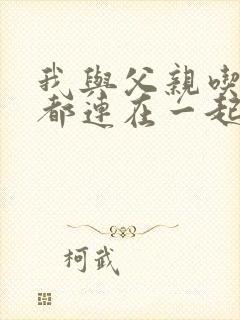 我與父親喫
都連在一起
柯武